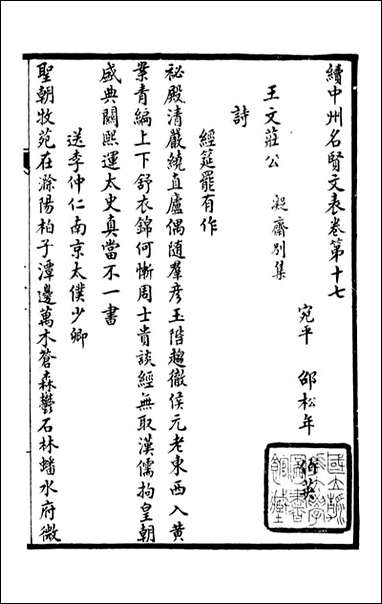 續中州名賢文表卷第十七
宛平 邵松年
王文莊公 凝齋別集
詩
經筵罷有作
祕殿清嚴繞直廬偶隨羣彥玉階趨徹侯元老東西入黃
案青編上下舒衣錦何慚周士貴談經無取漢儒拘皇朝
盛典關熙運太史真當不一書
送李仲仁南京太僕少卿
聖朝牧苑在滁陽柏子潭邊萬木蒼森鬱石林蟠水府微